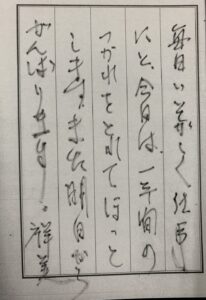 毎日いそがしく仕事し
ていると、今日は、一年間の
つかれをとれてほっと
します。また明日から
がんばります。祥美